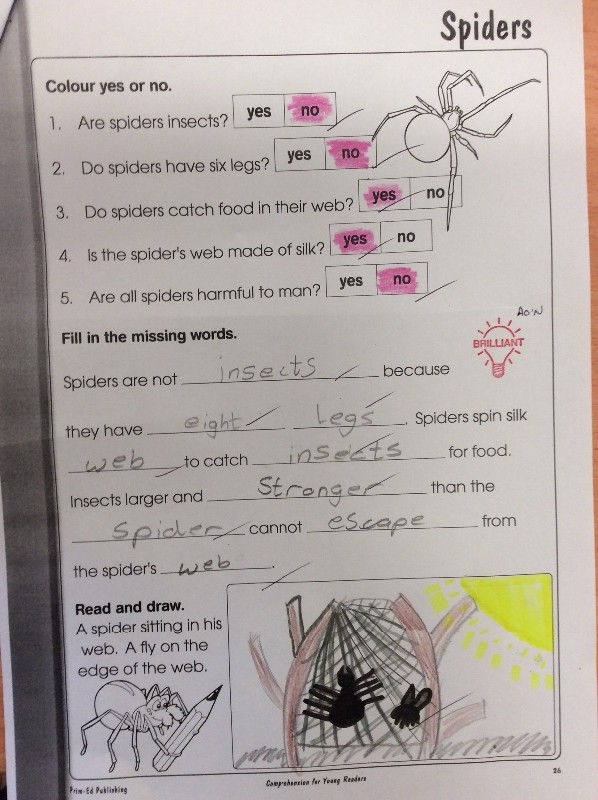 Spiders
Colour yes or no.
1. Are spiders insects? yes no
2. Do spiders have six legs? yes no
3. Do spiders catch food in their web? yes no
4. Is the spider's web made of silk? yes no
5. Are all spiders harmful to man? yes no
Fill in the missing words.
BRILLIANT
Spiders are not insects because
they have eight legs. Spiders spin silk
web to catch insects for food.
Insects larger and Stronger than the
spider cannot escape from
the spider's web.
Read and draw.
A spider sitting in his
web. A fly on the
edge of the web.
26
Prim-Ed Publishing Comprehension for Young Readers